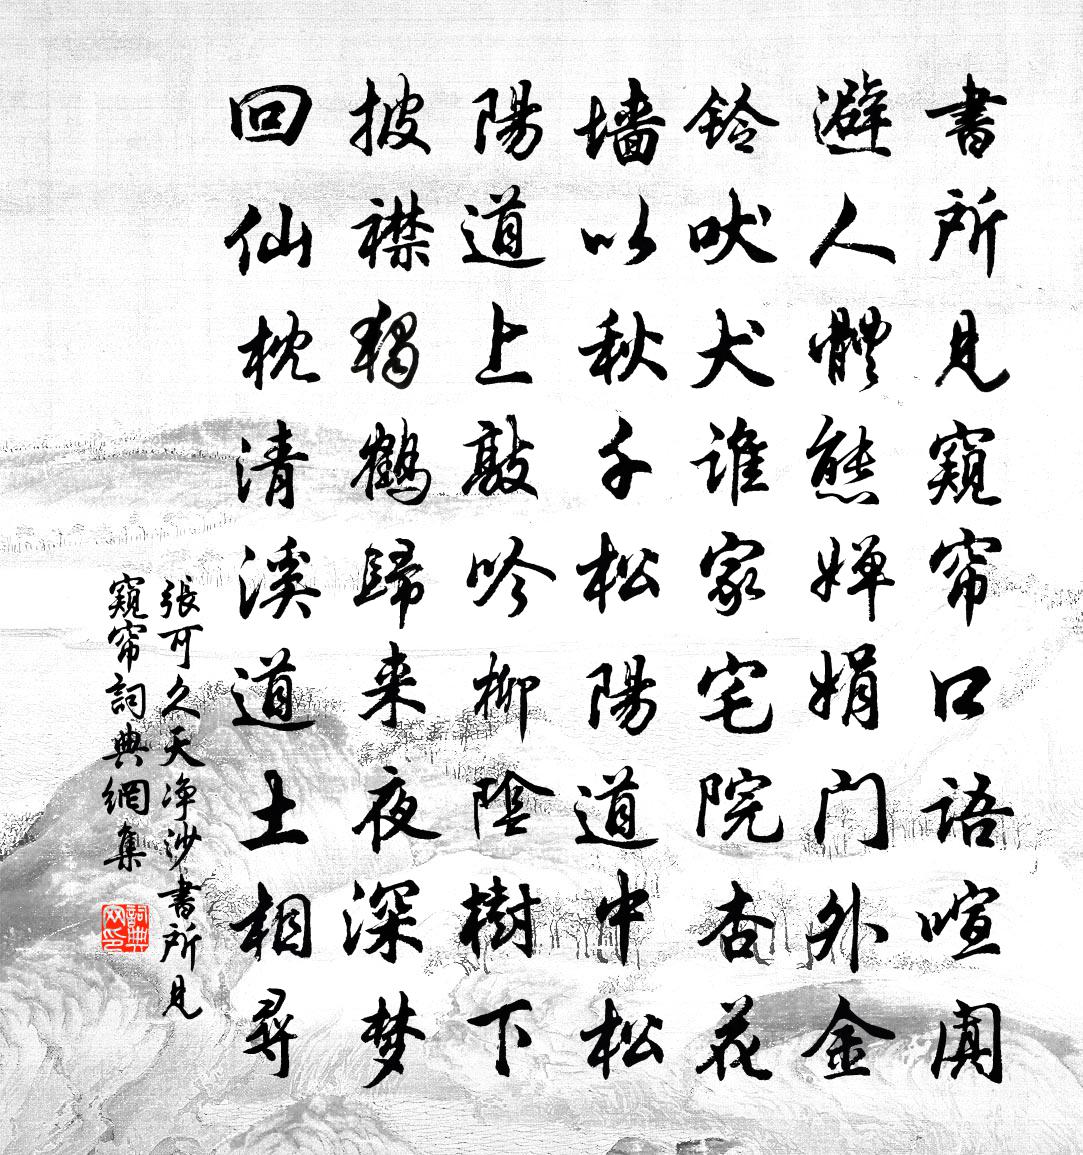 書所見窺帘口語喧闐
避人體態嬋娟门外金
鈴吠犬誰家宅院杏花
墙以秋千松陽道中松
陽道上敲吟柳陰樹下
披襟獨鶴歸来夜深梦
回仙枕清溪道士相尋
張可久天净沙書所見
窺帘詞典網集
詞典网印